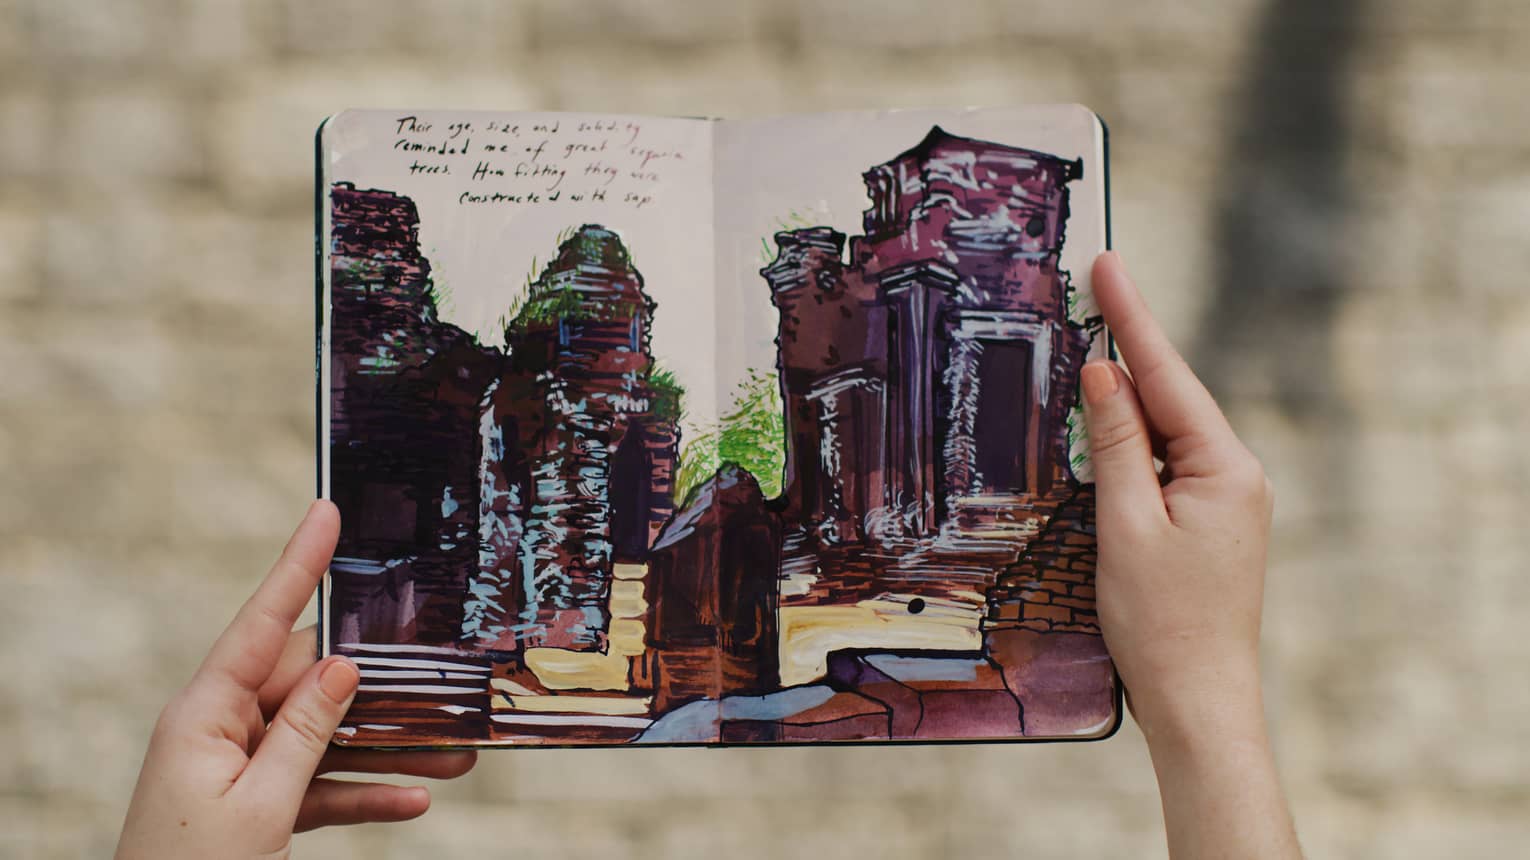 Their age, size, and solidity
reminded me of great sequoia
trees. How fitting they were
constructed with sap.